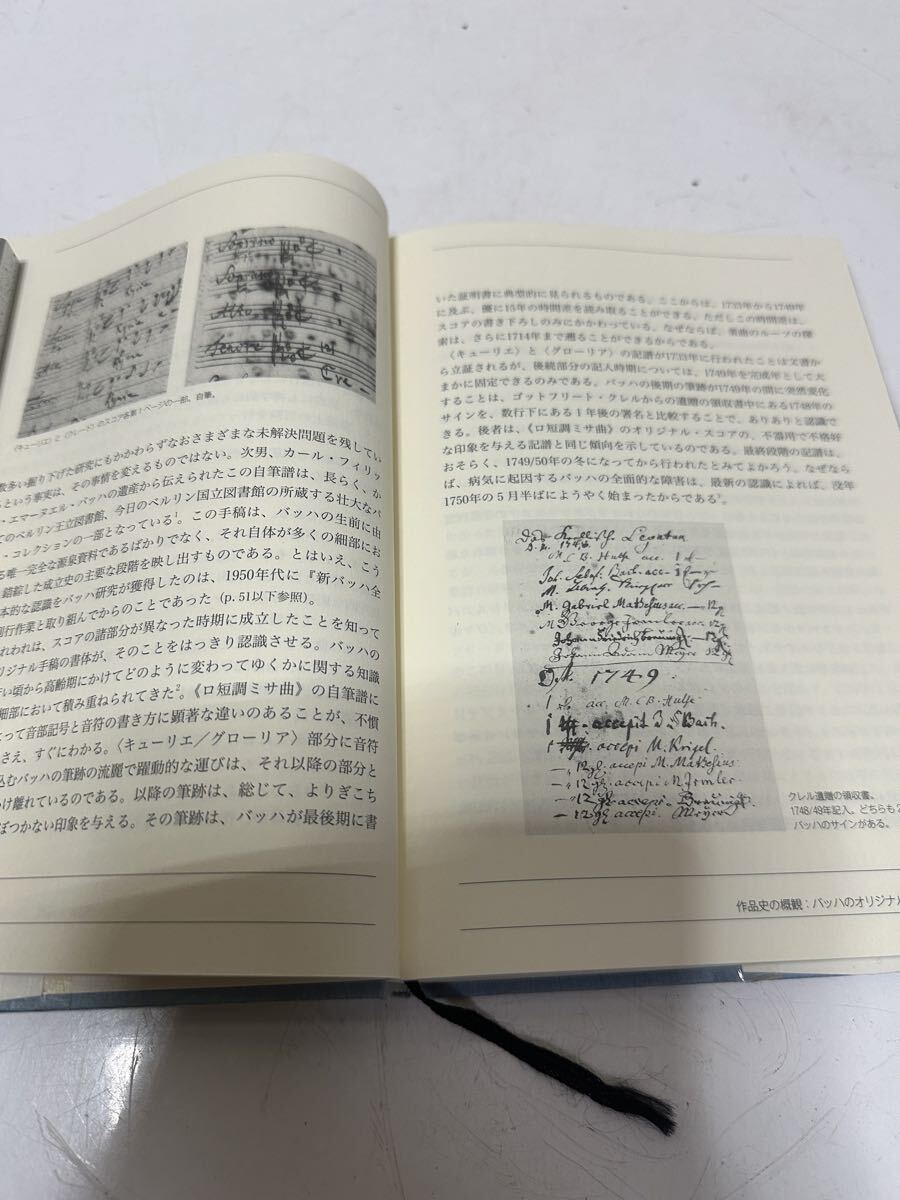 〈キューリエ〉と〈クレード〉のスコア各第1ページの一部、自筆。
数多い掘り下げた研究にもかかわらずなおさまざまな未解決問題を残してい
るという事実は、その事情を変えるものではない。次男、カール・フィリッ
・エマーヌエル・バッハの遺産から伝えられたこの自筆譜は、長らく、か
てのベルリン王立図書館、今日のベルリン国立図書館の所蔵する壮大なバ
・コレクションの一部となっている1。この手稿は、バッハの生前に由
る唯一完全な源泉資料であるばかりでなく、それ自体が多くの細部にお
錯綜した成立史の主要な段階を映し出すものである。とはいえ、こう
本的な認識をバッハ研究が獲得したのは、1950年代に『新バッハ全
刊行作業と取り組んでからのことであった (p. 51以下参照)。
われわれは、スコアの諸部分が異なった時期に成立したことを知って
リジナル手稿の書体が、そのことをはっきり認識させる。バッハの
い頃から高齢期にかけてどのように変わってゆくかに関する知識
細部において積み重ねられてきた2。《ロ短調ミサ曲》の自筆譜に
って音部記号と音符の書き方に顕著な違いのあることが、不慣
さえ、すぐにわかる。〈キューリエ/グローリア〉部分に音符
込むバッハの筆跡の流麗で躍動的な運びは、それ以降の部分と
け離れているのである。以降の筆跡は、総じて、よりぎこち
ぼつかない印象を与える。その筆跡は、バッハが最後期に書
いた証明書に典型的に見られるものである。ここからは、1733年から1749年
に及ぶ、優に15年の時間差を読み取ることができる。ただしこの時間差は、
スコアの書き下ろしのみにかかわっている。なぜならば、楽曲のルーツの探
索は、さらに1714年まで遡ることができるからである。
〈キューリエ〉と〈グローリア〉の記譜が1733年に行われたことは文書か
ら立証されるが、後続部分の記入時期については、1749年を完成年として大
まかに固定できるのみである。バッハの後期の筆跡が1749年の間に突然変化
することは、ゴットフリート・クレルからの遺贈の領収書中にある1748年の
サインを、数行下にある1年後の署名と比較することで、ありありと認識で
きる。後者は、《ロ短調ミサ曲》のオリジナル・スコアの、不器用で不格好
な印象を与える記譜と同じ傾向を示しているのである。最終段階の記譜は、
おそらく、1749/50年の冬になってから行われたとみてよかろう。なぜなら
ば、病気に起因するバッハの全面的な障害は、最新の認識によれば、没年
1750年の5月半ばにようやく始まったからである3。
M. C. B. Hulse acc.
Joh. Sebast. Bach. acc.
M. Gabriel Matthesius acc. — 12 g
1749.
acc. M. C. B. Hulse
accepit J S Bach.
accepi M. Krigel.
— 12 gl. accepi M. Matthesius
— 12 gl. accepi
— 12 gl. accepi.
— 12 gl accepi. Meyer
クレル遺贈の領収書。
1748/49年記入。どちらも2
バッハのサインがある。
作品史の概観：バッハのオリジナル